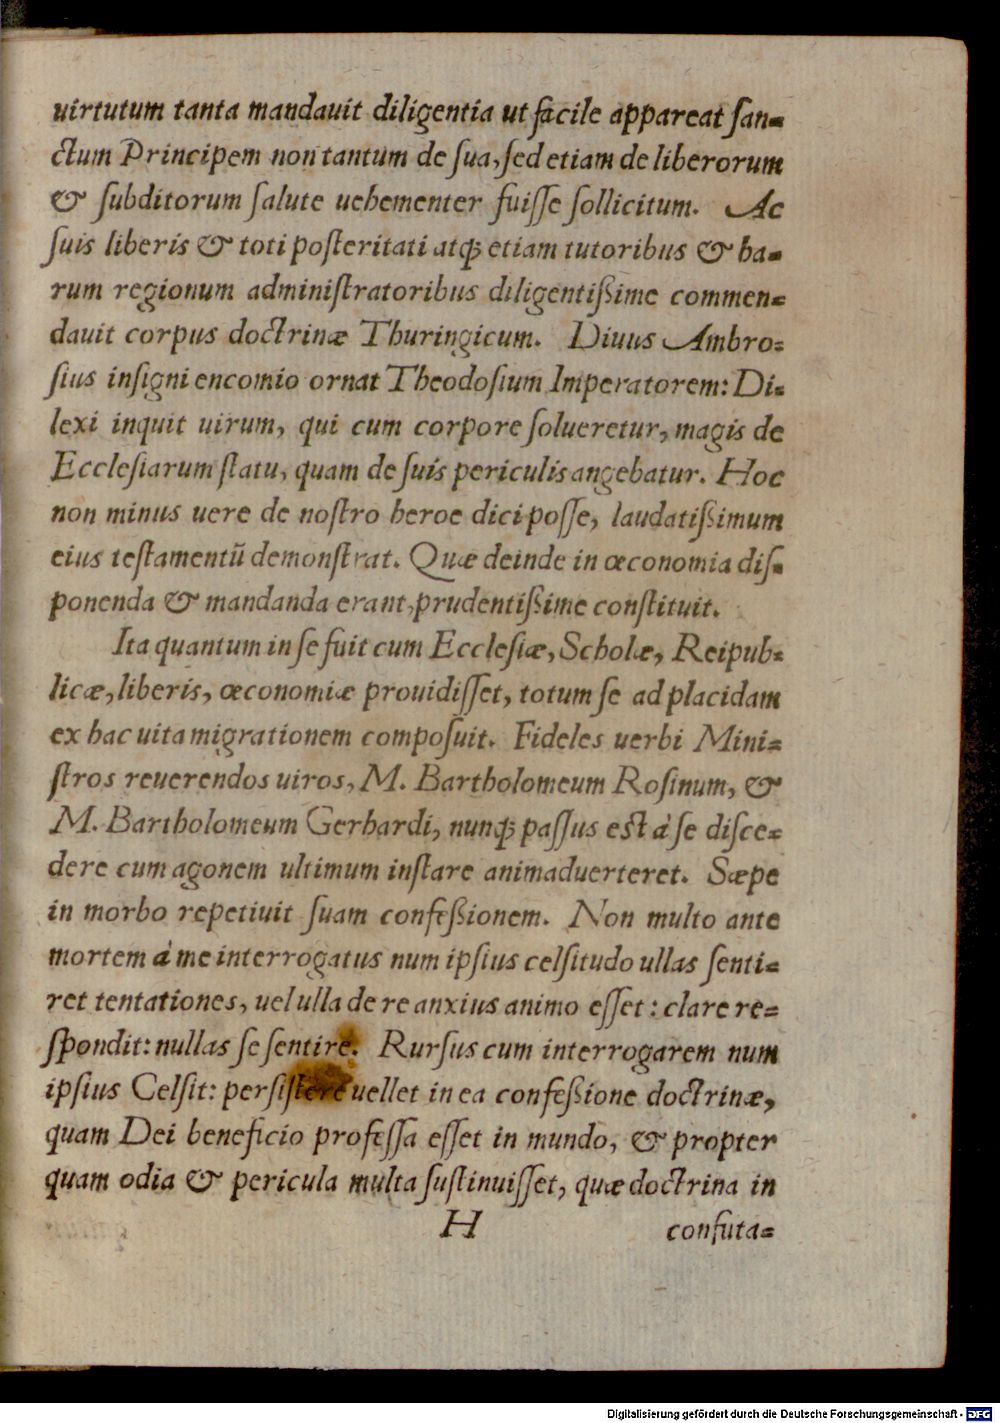 uirtutum tanta mandauit diligentia ut facile appareat ſan-
ctum Principem non tantum de ſua, ſed etiam de liberorum
& ſubditorum ſalute uehementer fuiſſe ſollicitum. Ac
ſuis liberis & toti poſteritati atq; etiam tutoribus & ha-
rum regionum adminiſtratoribus diligentißime commen-
dauit corpus doctrinæ Thuringicum. Diuus Ambro-
ſius inſigni encomio ornat Theodoſium Imperatorem: Di-
lexi inquit uirum, qui cum corpore ſolueretur, magis de
Eccleſiarum ſtatu, quam de ſuis periculis angebatur. Hoc
non minus uere de noſtro heroe dici poſſe, laudatißimum
eius teſtamentū demonſtrat. Quæ deinde in œconomia diſ-
ponenda & mandanda erant, prudentißime conſtituit.
Ita quantum in ſe fuit cum Eccleſiæ, Scholæ, Reipub-
licæ, liberis, œconomiæ prouidiſſet, totum ſe ad placidam
ex hac uita migrationem compoſuit. Fideles uerbi Mini-
ſtros reuerendos uiros, M. Bartholomeum Roſinum, &
M. Bartholomeum Gerhardi, nunq; paſſus est à ſe diſce-
dere cum agonem ultimum inſtare animaduerteret. Sæpe
in morbo repetiuit ſuam confeßionem. Non multo ante
mortem à me interrogatus num ipſius celſitudo ullas ſenti-
ret tentationes, uel ulla de re anxius animo eſſet: clare re-
ſpondit: nullas ſe ſentire. Rurſus cum interrogarem num
ipſius Celſit: perſiſtere uellet in ea confeßione doctrinæ,
quam Dei beneficio profeſſa eſſet in mundo, & propter
quam odia & pericula multa ſuſtinuiſſet, quæ doctrina in
H confuta-
Digitalisierung gefördert durch die Deutsche Forschungsgemeinschaft - DFG